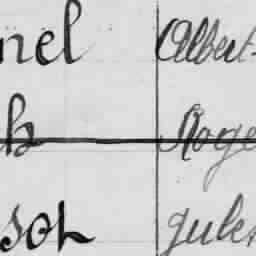 nel Albert
h Roge
son Jules